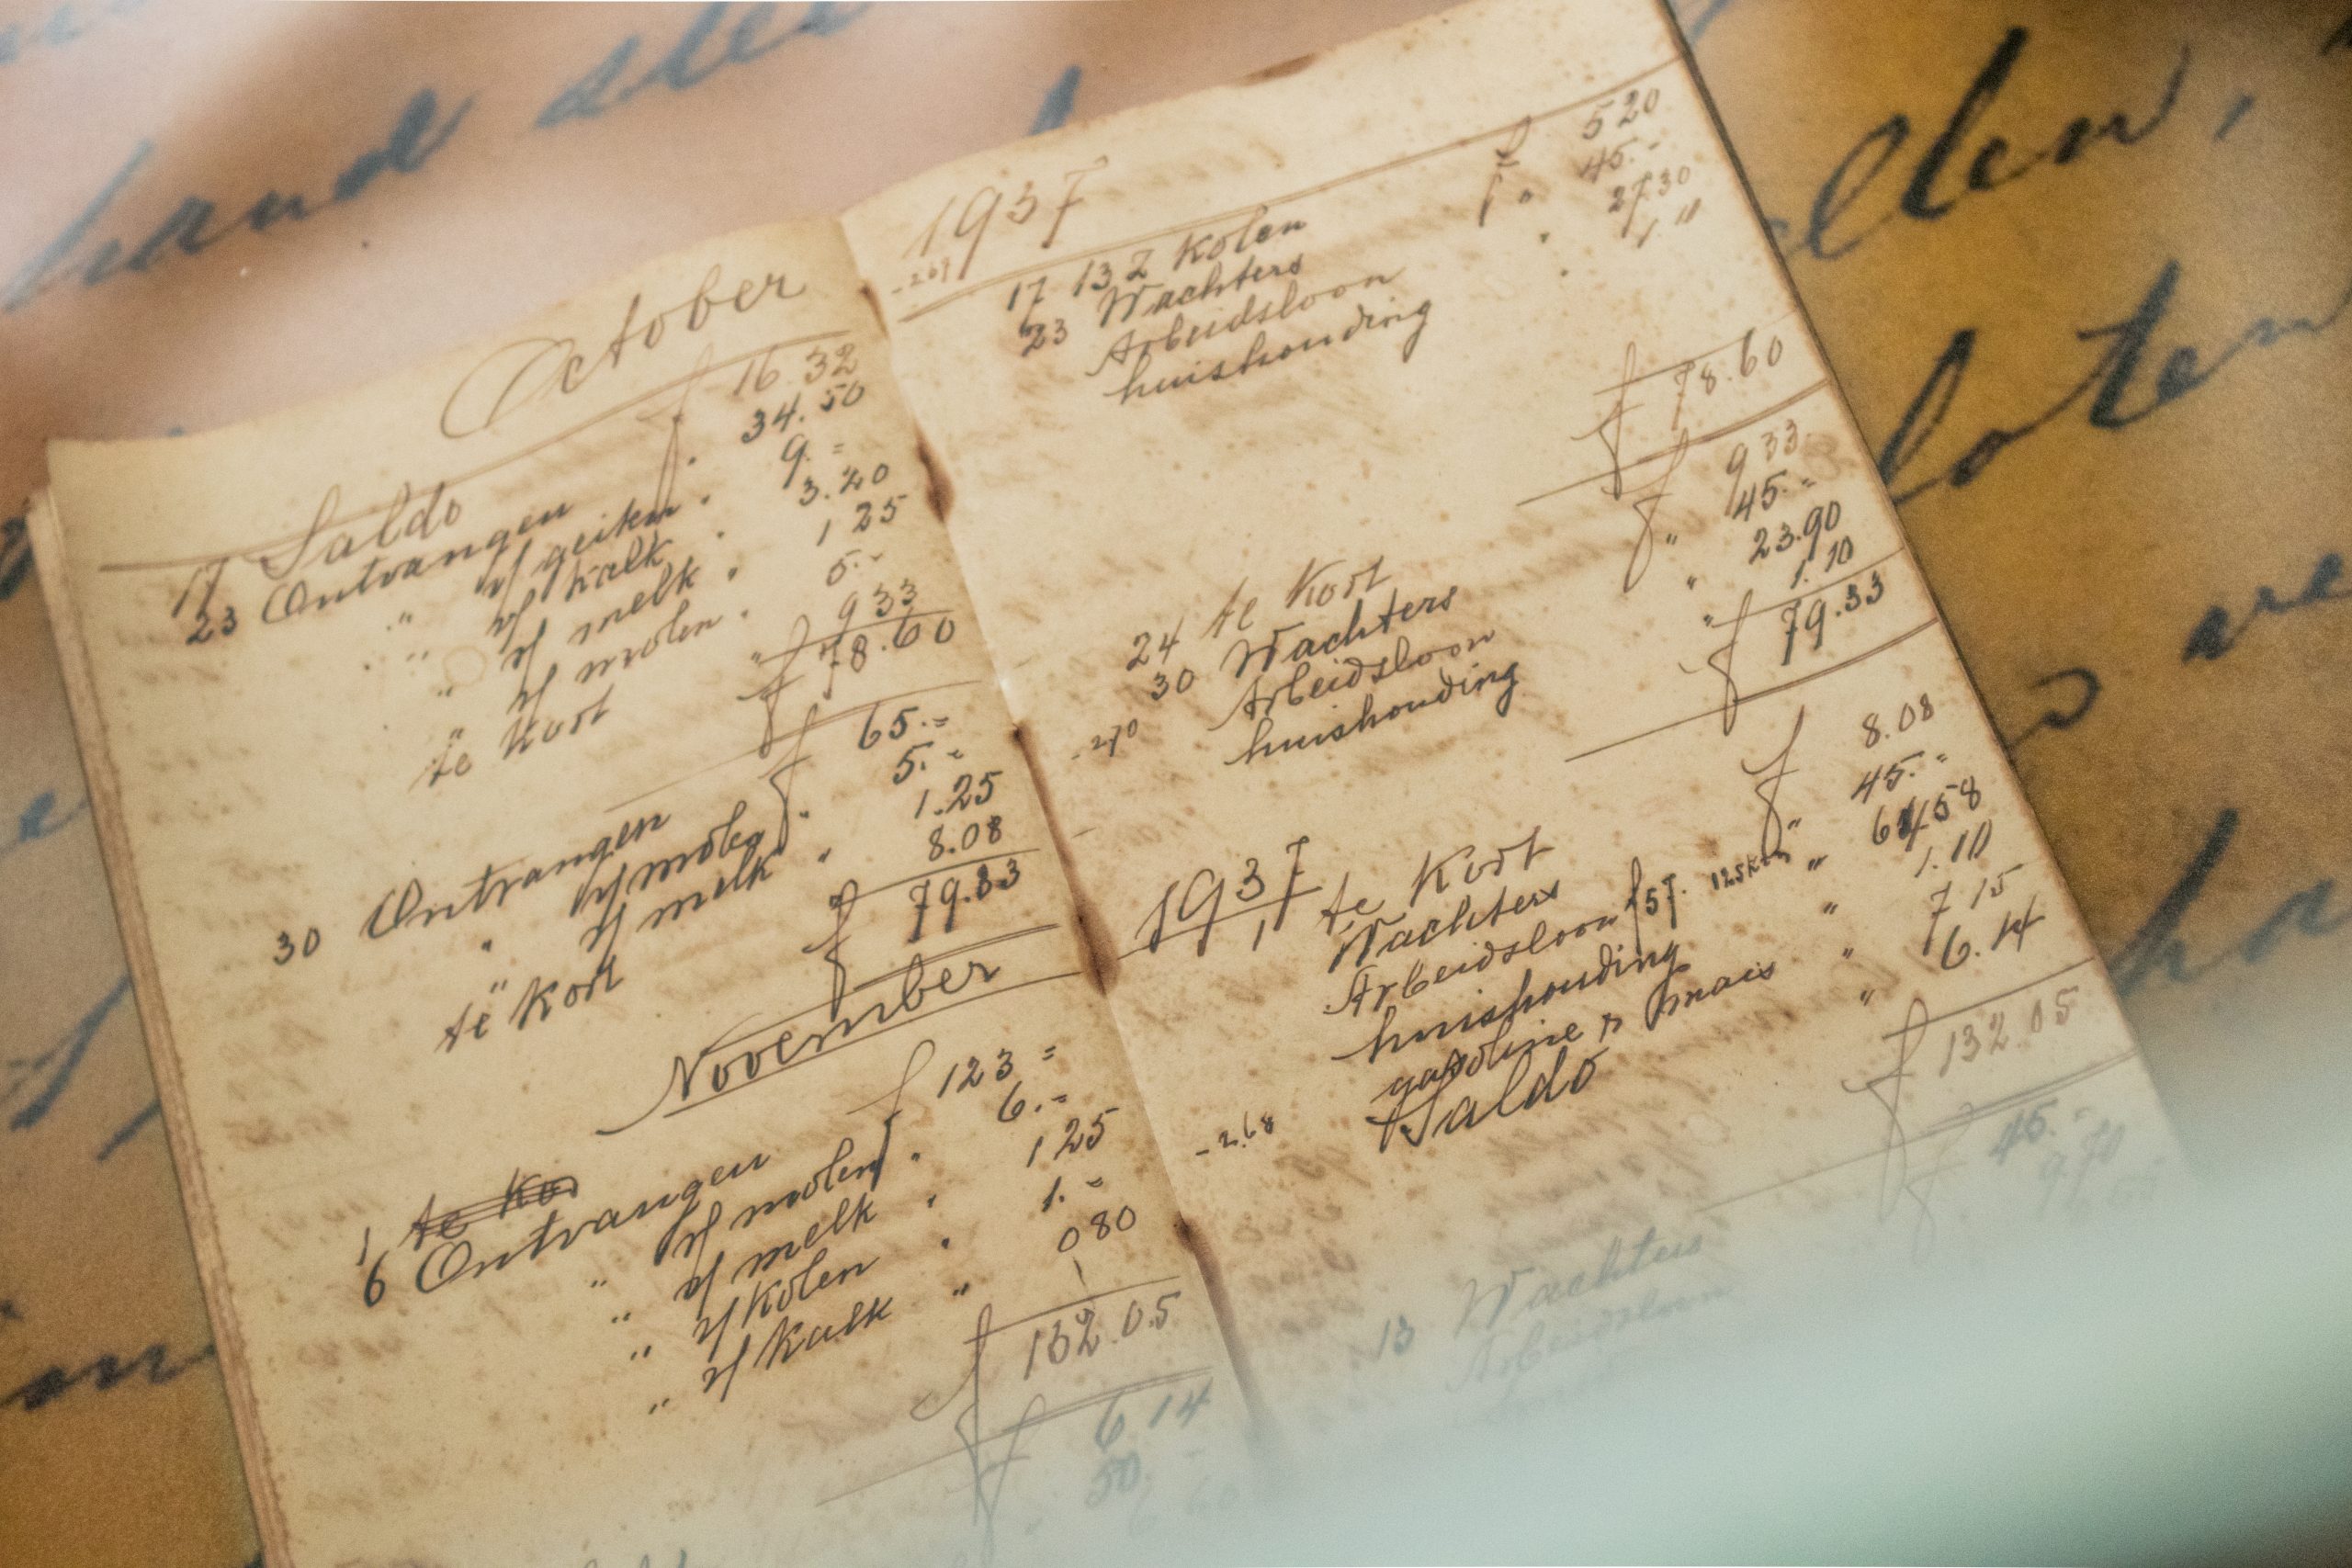 October
17 Saldo f 16.32
23 Ontvangen f . 34.50
" v/ geiten . 9.=
" v/ Kalk . 3.20
" v/ melk . 1 25
" v/ molen . 5.-
te Kort " 9 33
f 78.60
30 Ontvangen f 65.=
" v/ molen . 5.-
" v/ melk " 1.25
te Kort " 8.08
f 79.33
November
1 te Kor
6 Ontvangen f 123 =
" v/ molen . 6.-
" v/ melk . 1 25
" v/ Kolen . 1.-
" v/ Kalk " 0 80
f 132.05
f 6 14
50.-
1937
-269
17 132 Kolen f 5 20
23 Wachters f " 45.-
Arbeidsloon . 27.30
huishouding . 1. "
f 78.60
24 te Kort f 9 33
30 Wachters " 45.-
Arbeidsloon " 23.90
-270 huishouding " 1.10
f 79.33
1937
1 te Kort f 8.08
Wachters " 45.-
Arbeidsloon f 57. " 64 58
huishouding " 1.10
gasoline & mais " 7 15
-268 Saldo " 6.14
f 132.05
13 Wachters f 45.-
Arbeidsloon 9.70
hand
llen,
loten
are